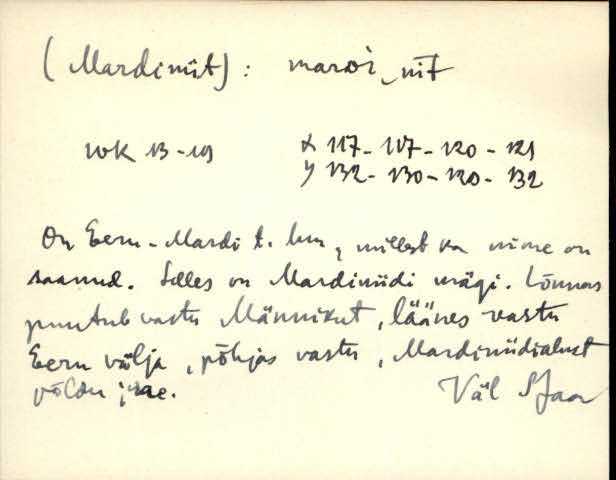 (Mardiniit): mardi_niit
WK 13-19 x 117-117-120-121
y 132-130-120-132
On Eeru-Mardi t. hm, millest ka nime on
saanud. Selles on Mardiniidi mägi. Lõunas
puutub vastu Männikut, läänes vastu
Eeru välja, põhjas vastu, Mardiniidialust
põldu jne. Väl